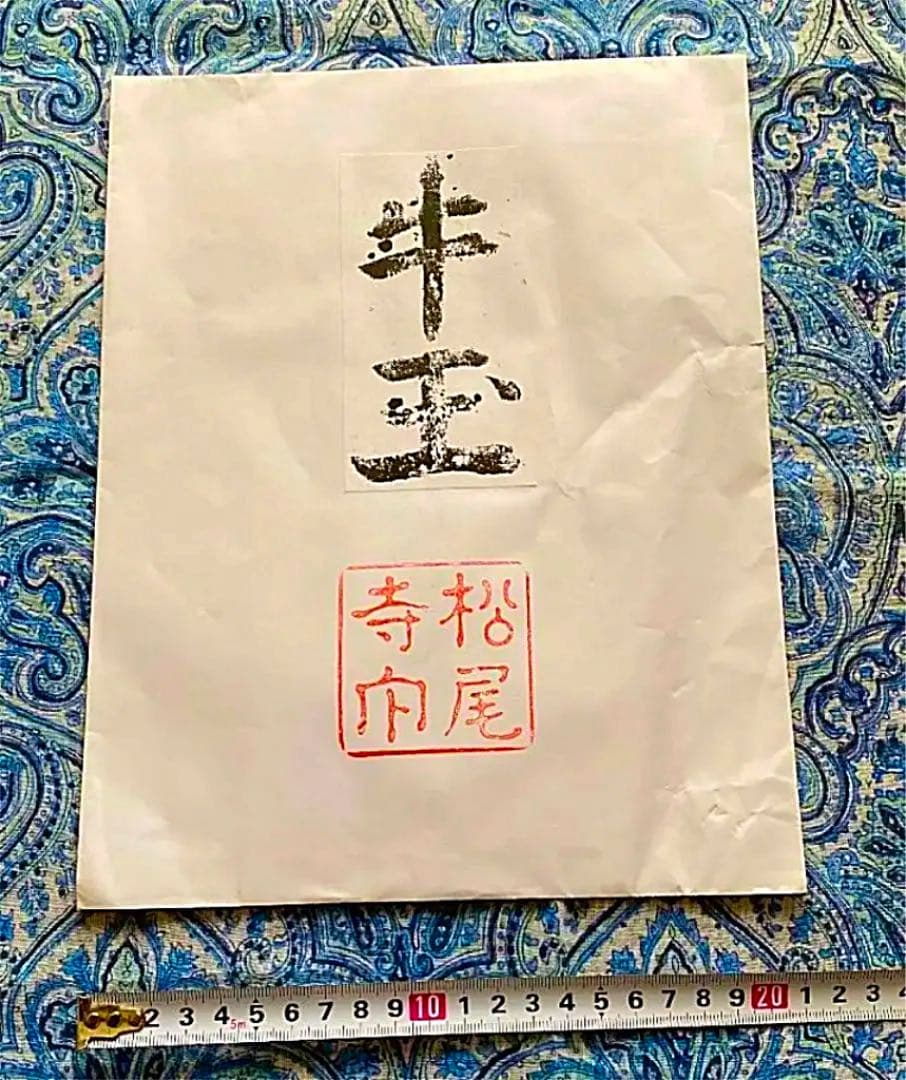 牛玉
松尾
寺内
2 3 4 5 6 7 8 9 10 1 2 3 4 5 6 7 8 9 20 1 2 3
5m